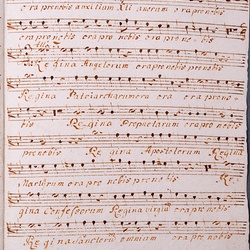 ora pronobis auxilium Xti anorum ora pronobis
ora pronobis ora pro nobis ora pro nobis
Allo
Regina Angelorum ora pronobis ora pro no
bis Regina Patriarcharum ora ora prono
bis Regina Prophetarum ora pronobis ora
pronobis Regina Apostolorum Regina
Martirum ora pro nobis pro nobis Re
gina Confessorum Regina virginum ora pro nobis
Regina sanctorum omnium ora pro nobis